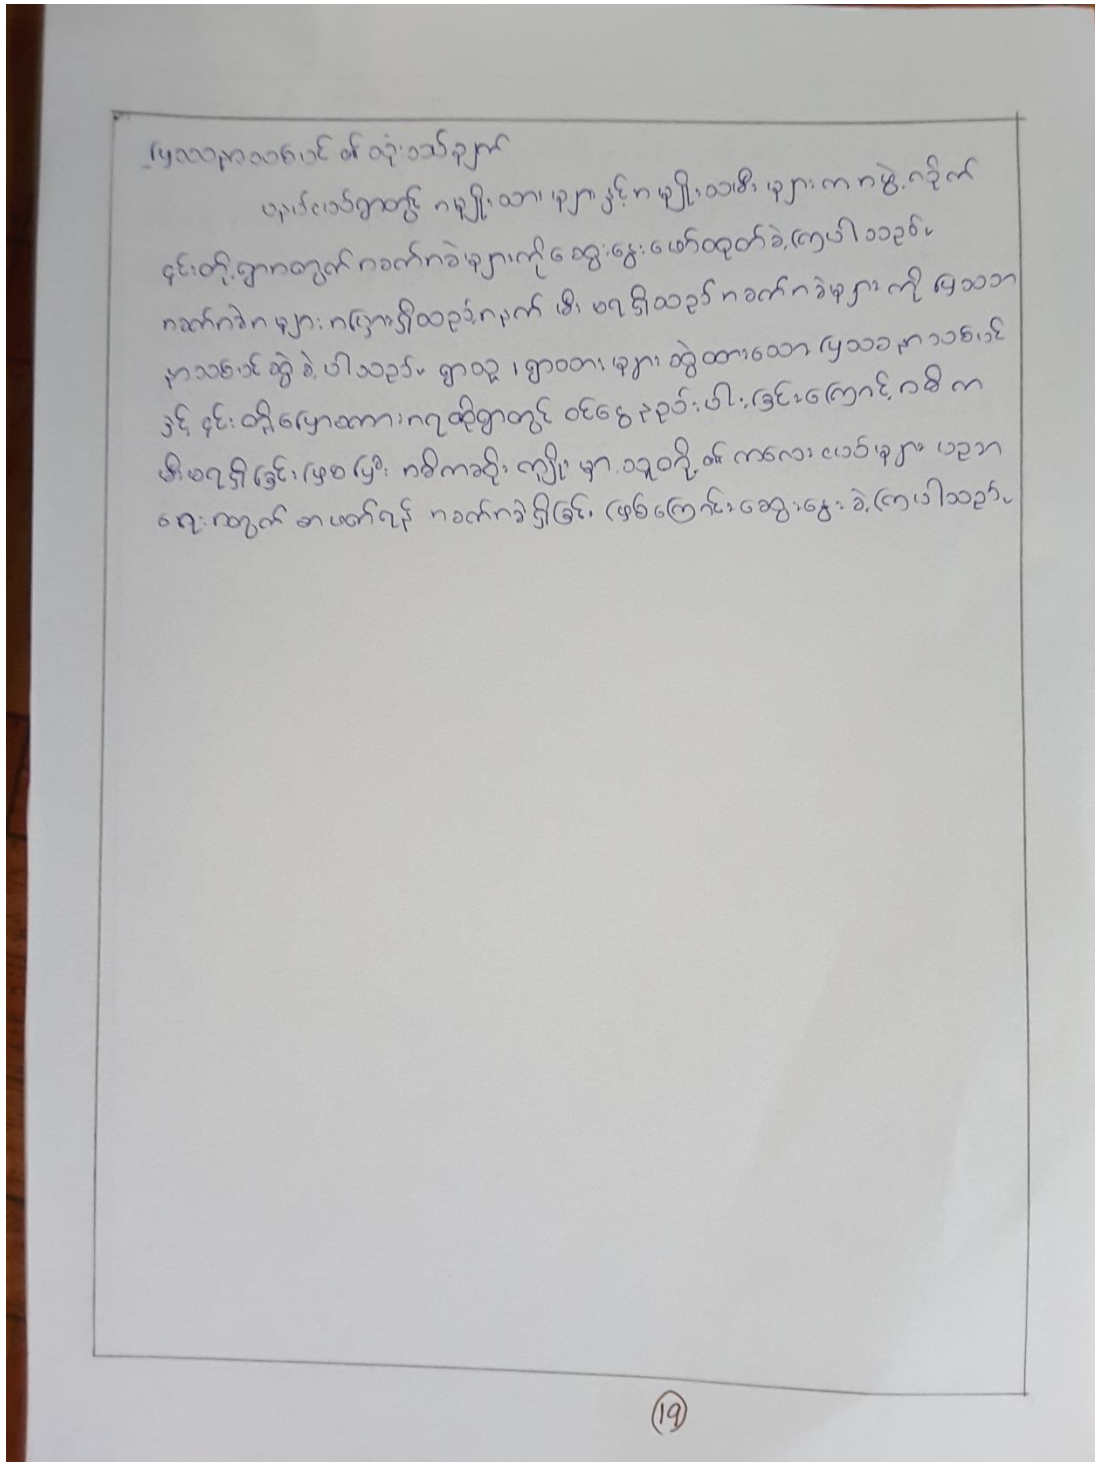 ပြဿနာသစ်ပင်၏ သုံးသပ်ချက်
ပန္နင်းငယ်ရွာတွင် အမျိုးသားများနှင့်အမျိုးသမီးများက အဖွဲ့လိုက်
၎င်းတို့ရွာအတွက်အခက်အခဲများကိုဆွေးနွေးဖော်ထုတ်ခဲ့ကြပါသည်။
အခက်အခဲများအကြားရှိသည့်အနက် မီးမရရှိသည့်အခက်အခဲများကို ပြဿ
နာသစ်ပင်ဆွဲခဲ့ပါသည်။ ရွာသူ၊ရွာသားများဆွဲထားသော ပြဿနာသစ်ပင်
နှင့် ၎င်းတို့ပြောစကားအရထိုရွာတွင် ဝင်ငွေနည်းပါးခြင်းကြောင့် အဓိက
မီးမရရှိခြင်းဖြစ်ပြီး အဓိကဆိုးကျိုးမှာ သူတို့၏ ကလေးငယ်များ ပညာ
ရေးအတွက် စာဖတ်ရန် အခက်အခဲရှိခြင်းဖြစ်ကြောင်းဆွေးနွေးခဲ့ကြပါသည်။
19